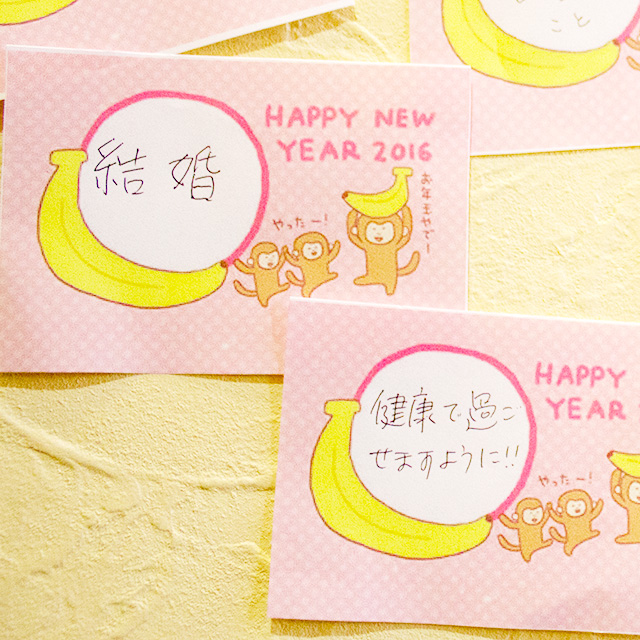 こと
HAPPY NEW
YEAR 2016
結婚
やったー!
健康で過ご
せますように!!
HAPPY
YEAR
やったー!